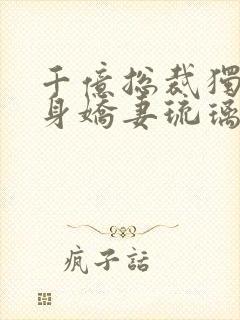 千億總裁獨
身嬌妻琉璃
瘋子話